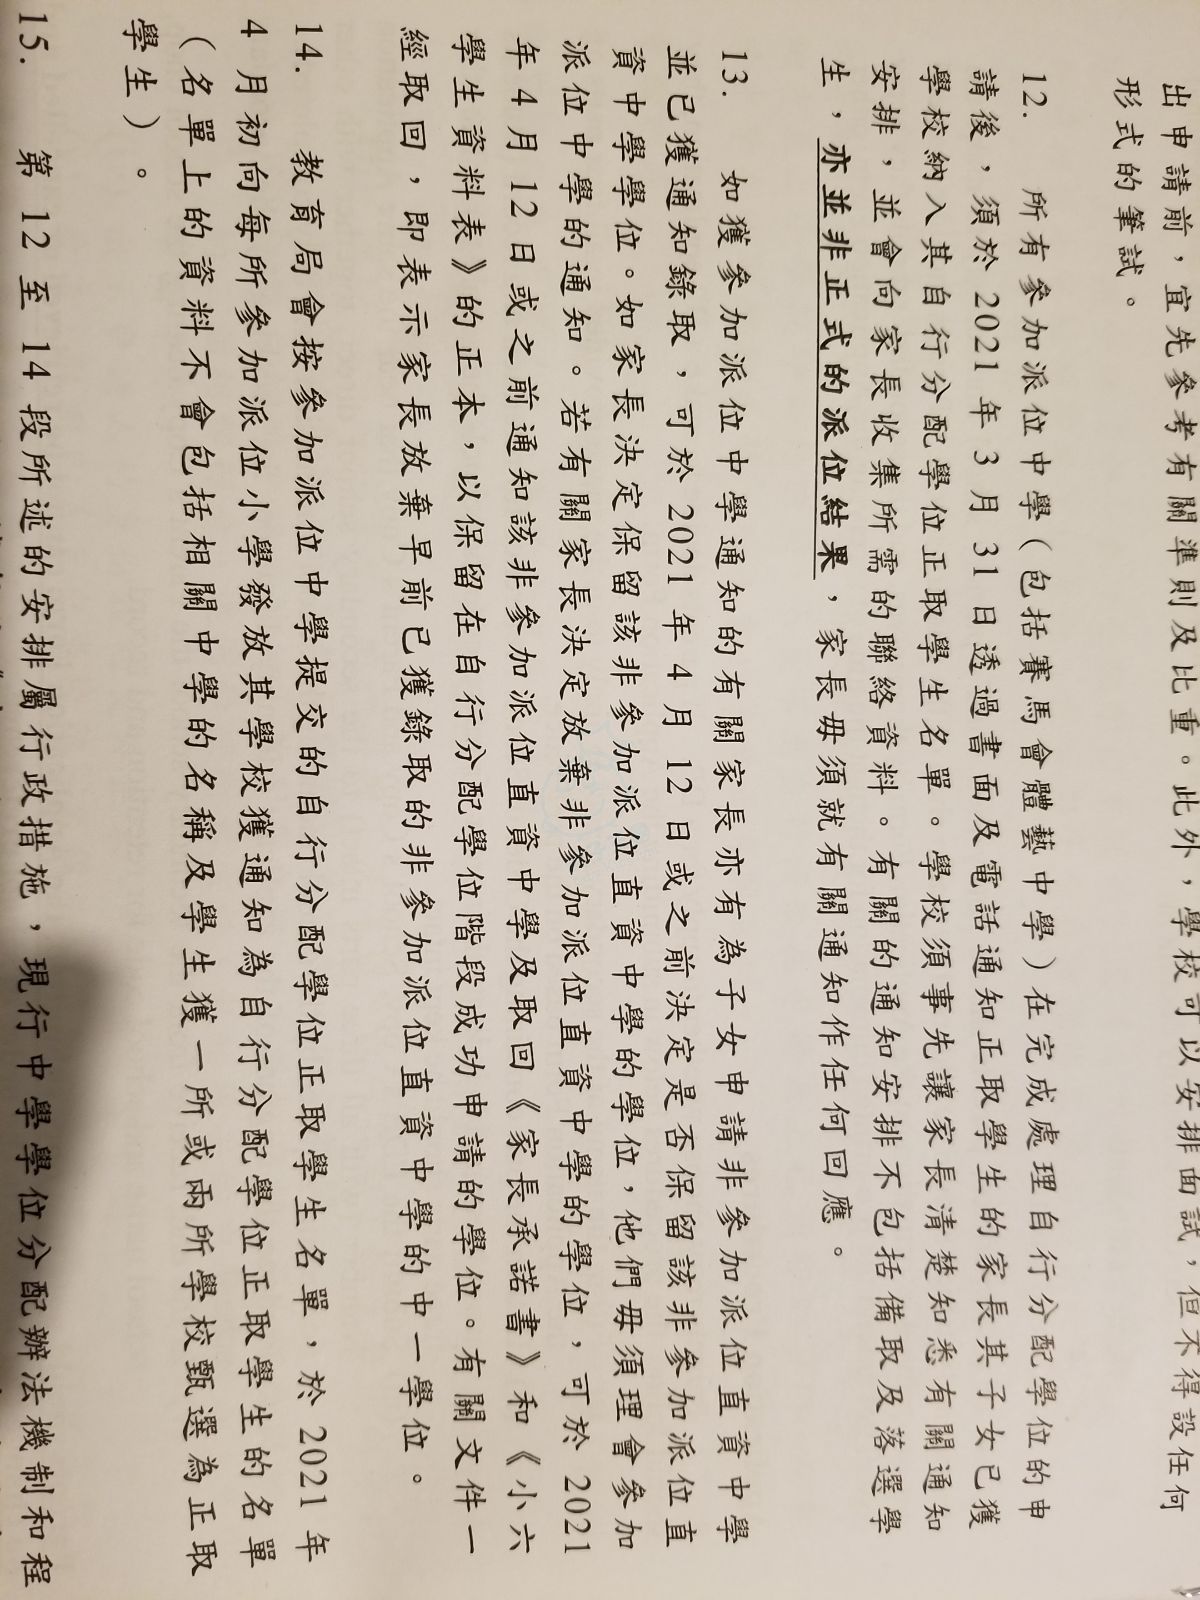 出申請前，宜先參考有關準則及比重。此外，學校可以安排面試，但不得設任何
形式的筆試。
12. 所有參加派位中學（包括賽馬會體藝中學）在完成處理自行分配學位的申
請後，須於 2021 年 3 月 31 日透過書面及電話通知正取學生的家長其子女已獲
學校納入其自行分配學位正取學生名單。學校須事先讓家長清楚知悉有關通知
安排，並會向家長收集所需的聯絡資料。有關的通知安排不包括備取及落選學
生，亦並非正式的派位結果，家長毋須就有關通知作任何回應。
13. 如獲參加派位中學通知的有關家長亦有為子女申請非參加派位直資中學
並已獲通知錄取，可於 2021 年 4 月 12 日或之前決定是否保留該非參加派位直
資中學學位。如家長決定保留該非參加派位直資中學的學位，他們毋須理會參加
派位中學的通知。若有關家長決定放棄非參加派位直資中學的學位，可於 2021
年 4 月 12 日或之前通知該非參加派位直資中學及取回《家長承諾書》和《小六
學生資料表》的正本，以保留在自行分配學位階段成功申請的學位。有關文件一
經取回，即表示家長放棄早前已獲錄取的非參加派位直資中學的中一學位。
14. 教育局會按參加派位中學提交的自行分配學位正取學生名單，於 2021 年
4 月初向每所參加派位小學發放其學校獲通知為自行分配學位正取學生的名單
（名單上的資料不會包括相關中學的名稱及學生獲一所或兩所學校甄選為正取
學生）。
15. 第 12 至 14 段所述的安排屬行政措施，現行中學學位分配辦法機制和程